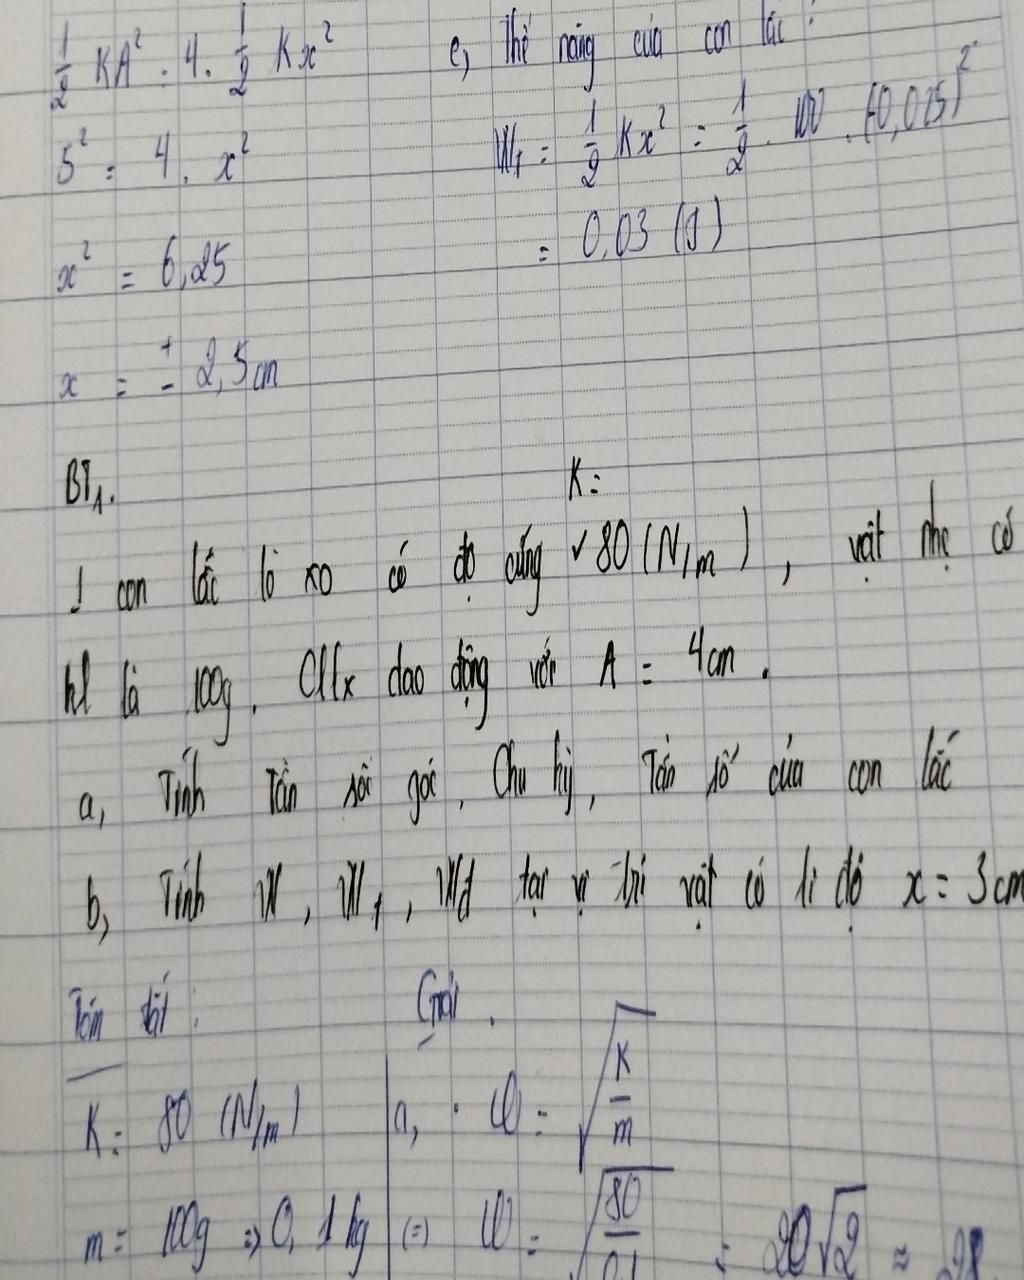 1/2 KA² = 4 . 1/2 Kx²
5² = 4 . x²
x² = 6,25
x = ± 2,5cm
c, Thế năng của con lắc :
Wt = 1/2 Kx² = 1/2 . 100 . (-0,025)²
= 0,03 (J)
BT1.
K =
1 con lắc lò xo có độ cứng √ 80 (N/m) , vật nhẹ có
kl là 100g . CLLx dao động với A = 4cm .
a, Tính Tần số góc , Chu kỳ , Tần số của con lắc
b, Tính W , Wt , Wđ tại vị trí vật có li độ x = 3cm
Tóm tắt : Giải .
K = 80 (N/m) a, . ω = √K/m
m = 100g => 0,1kg (=) ω = √80/0,1 = 20√2 ≈ 28